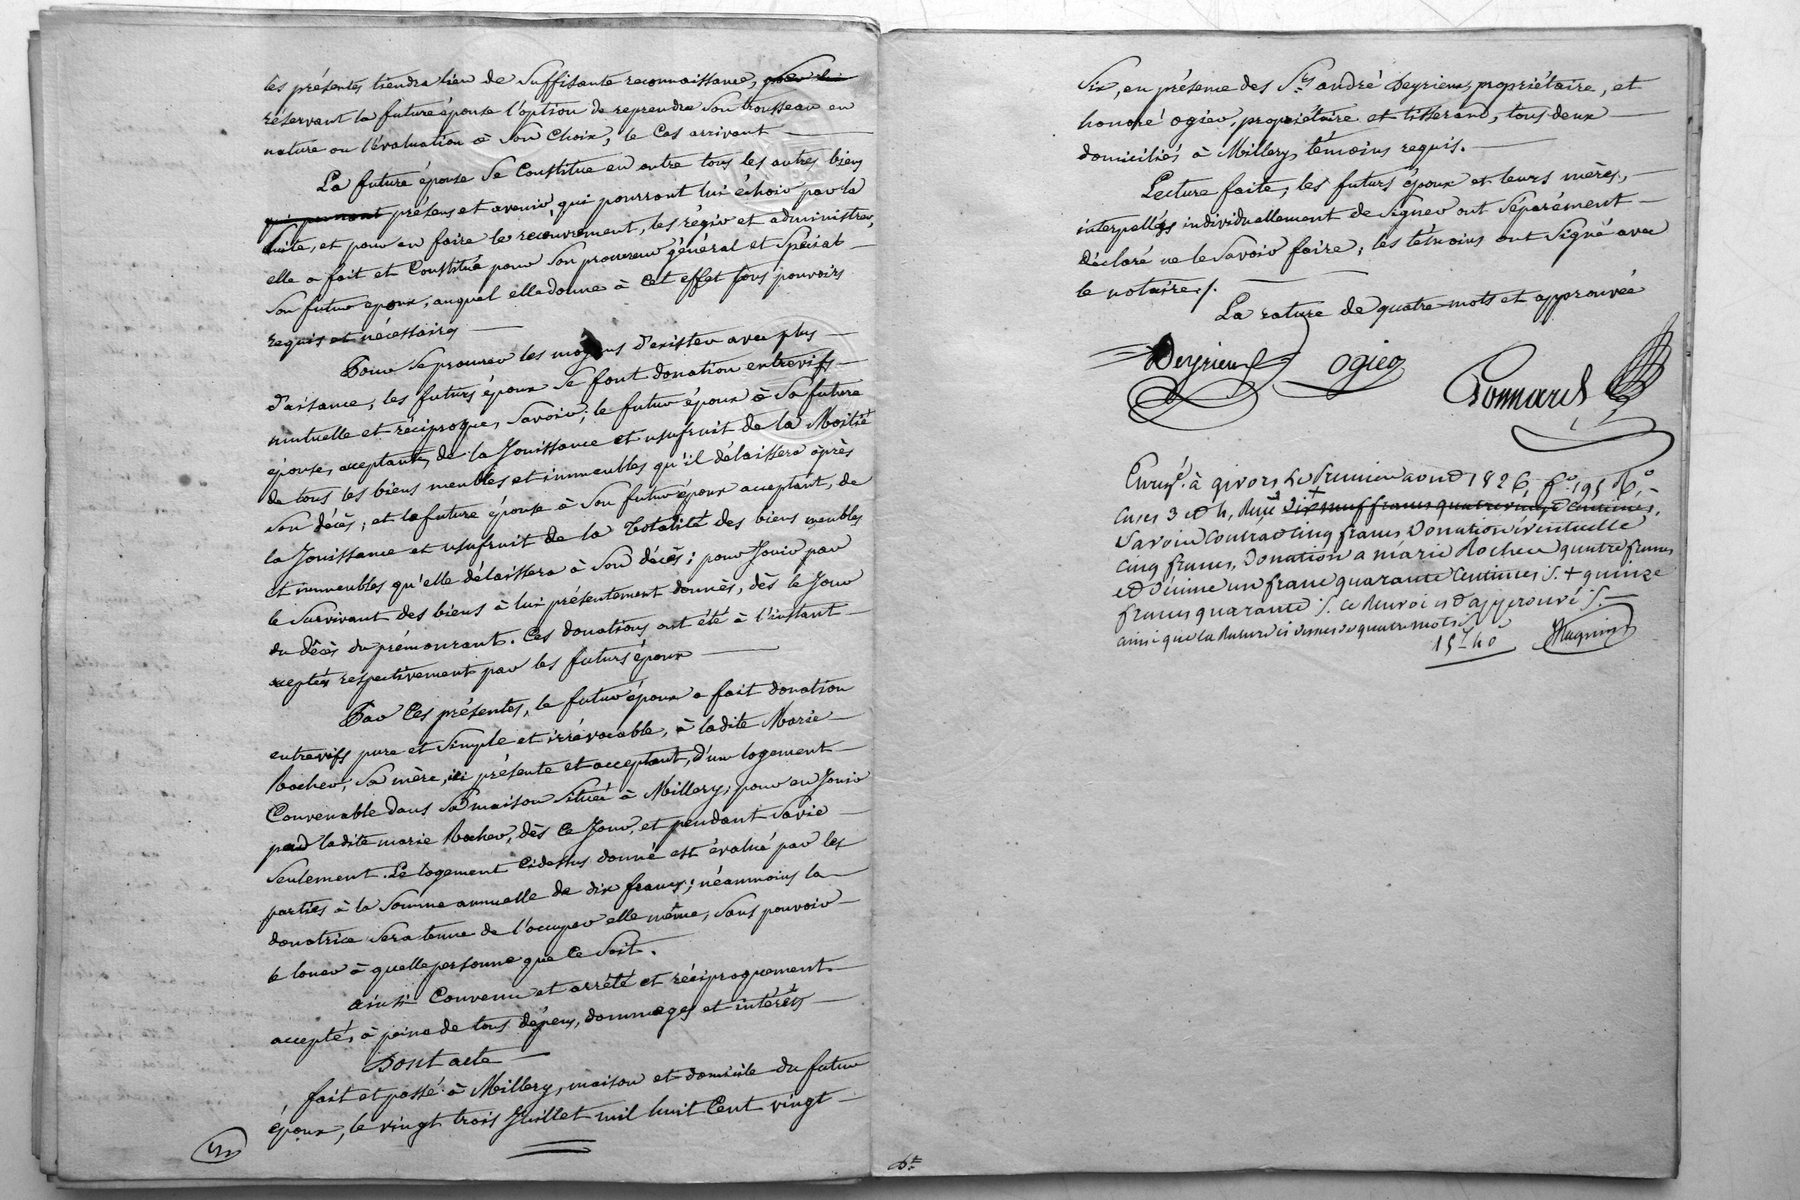 les présentes tiendra lieu de suffisante reconnaissance,
réservant la future épouse l'option de reprendre son trousseau en
nature ou l'évaluation à son choix, le cas arrivant —
La future épouse se constitue en outre tous les autres biens
qui pourront présens et avenir, qui pourront lui échoir par la
suite, et pour en faire le recouvrement, les régir et administrer,
elle a fait et constitué pour son procureur général et spécial —
son futur époux, auquel elle donne à cet effet tous pouvoirs
requis et nécessaires —
Pour se procurer les moyens d'exister avec plus —
d'aisance, les futurs époux se font donation entrevifs —
mutuelle et réciproque, savoir; le futur époux à sa future
épouse, acceptante, de la Jouissance et usufruit de la Moitié
de tous les biens meubles et immeubles qu'il délaissera après
son décès; et la future épouse à son futur époux acceptant, de
la Jouissance et usufruit de la totalité des biens meubles
et immeubles qu'elle délaissera à son décès; pour Jouir par
le survivant des biens à lui présentement donnés, dès le Jour
du décès du prémourant. Ces donations ont été à l'instant —
acceptées respectivement par les futurs époux —
Par Ces présentes, le futur époux a fait donation
entrevifs pure et simple et irrévocable, à ladite Marie —
Rocher, sa mère, ici présente et acceptant, d'un logement —
Convenable dans sa maison située à Millery, pour en Jouir
ladite marie Rocher, dès ce Jour, et pendant sa vie —
seulement. Le logement cidessus donné est évalué par les
parties à la somme annuelle de dix francs; néanmoins la —
donatrice sera tenue de l'occuper elle même, sans pouvoir —
le louer à quelle personne que ce soit.
ainsi Convenu et arrêté et réciproquement —
accepté, à peine de tous dépens, dommages et intérêts —
Dont acte —
fait et passé à Millery, maison et domicile du futur
époux, le vingt trois Juillet mil huit Cent vingt —
six, en présence des Srs andré Deyrieux, propriétaire, et
honoré ogier, propriétaire et tisserand, tous deux —
domiciliés à Millery, témoins requis. —
Lecture faite, les futurs époux et leurs mères, —
interpellés individuellement de signer ont séparément —
déclaré ne le savoir faire; les témoins ont signé avec
le notaire./. —
La rature de quatre mots et approuvée
Deyrieux ogier
Ponnard
Enregt. à givors le premier aout 1826, fo. 195 Ro.
cases 3 et 4, Reçu + dix neuf francs quatre vingt centimes,
savoir contrat Cinq francs, Donation éventuelle
cinq francs, Donation a marie Rocher quatre francs
et Décime un franc quarante centimes ./. + quinze
francs quarante ./. ce Renvoi est approuvé ./. —
ainsi que la Rature ci dessus de quatre mots
15f 40c Magnin